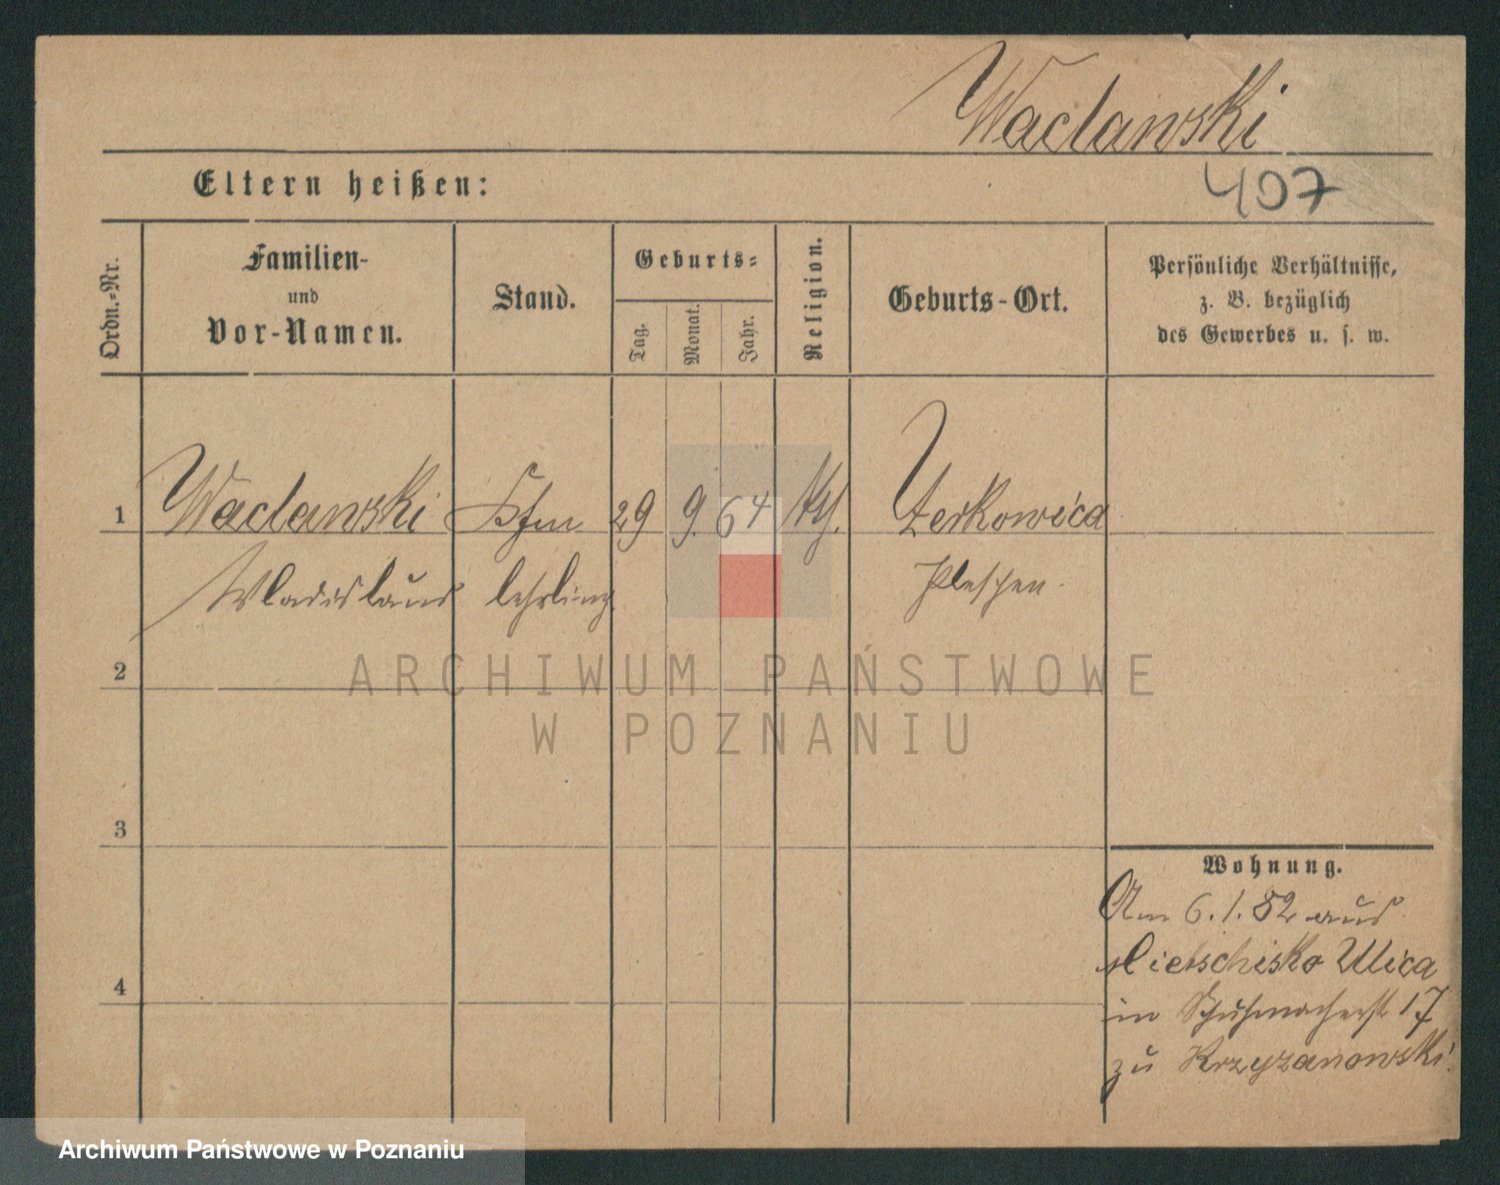 Waclawski
407
Eltern heißen:
Ordn.-Nr.
Familien-
und
Vor-Namen.
Stand.
Geburts-
Tag.
Monat.
Jahr.
Religion.
Geburts-Ort.
Persönliche Verhältnisse,
z. B. bezüglich
des Gewerbes u. s. w.
1 Waclawski Kfm 29 9. 64 Kth. Żerkowica
Wladislaus lehrling Pleschen.
2
ARCHIWUM PAŃSTWOWE
W POZNANIU
3
Wohnung.
Am 6.1.82 aus
Ulica
4
in Schuhmacherst 17
zu Krzyzanowski
Archiwum Państwowe w Poznaniu